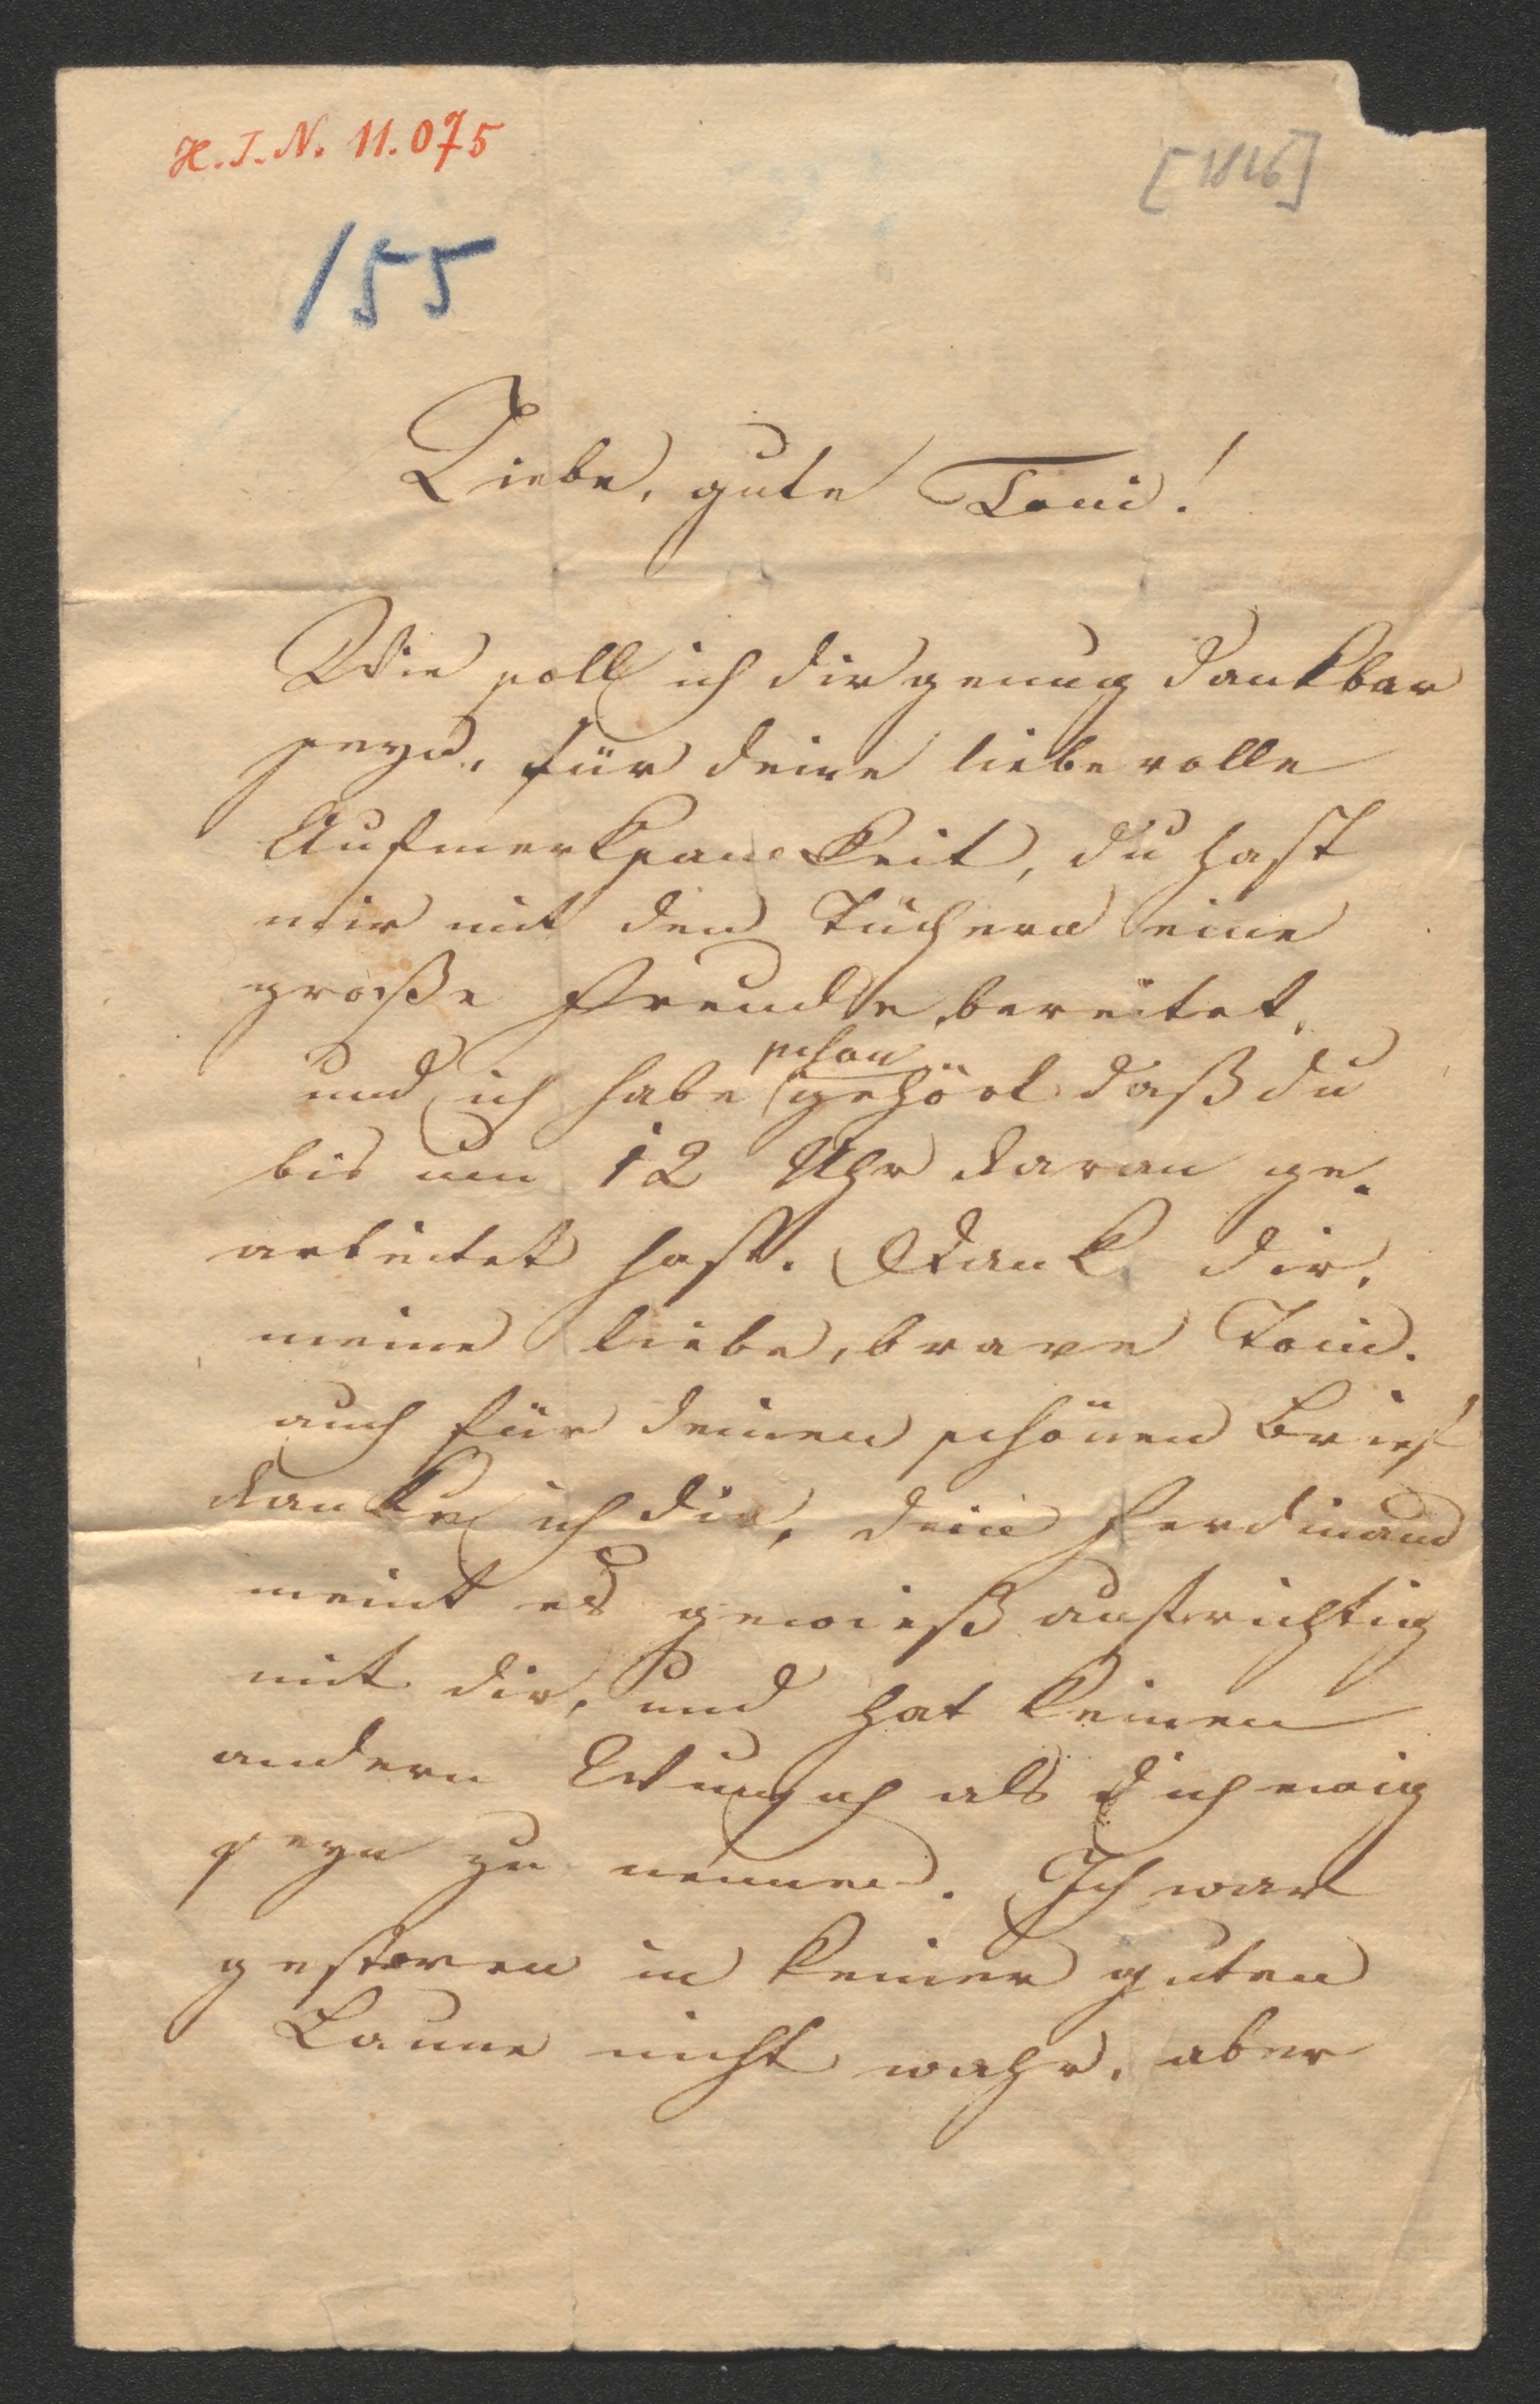 H. I. N. 11.075
[1826]
155
Liebe, gute Toni!
Wie soll ich dir genug dankbar
seyn, für deine liebevolle
Aufmerksamkeit, du hast
mir mit den Tüchern eine
große Freude bereitet,
schon
und ich habe gehört daß du
bis um 12 Uhr daran ge-
arbeitet hast. Dank dir,
meine liebe, brave Toni.
auch für deinen schönen Brief
danke ich dir, dein Ferdinand
meint es gewieß aufrichtig
mit dir, und hat keinen
andern Wunsch als dich ewig
seyn zu nennen. Ich war
gestern in keiner guten
Laune nicht wahr, aber